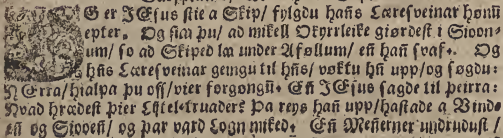 OG er JEsus stie a Skip/ fylgdu hañs Læresveinar honū
epter. Og siaā þu/ ad mikell Okyrrleike giørdest i Sioon-
um/ so ad Skiped læ under Aføllum/ eñ hañ svaf. Og
hñs Læresveinar geingu til hñs/ vøktu hañ upp/ og søgdu:
HErra/ hialpa þu oss/ vier forgongū. Eñ JEsus sagde til þeirra:
Hvad hrædest þier Lijtel-truader? Þa reys hañ upp/ hastade a Vind-
eñ og Siooeñ/ og þar vard Logn miked. Eñ Meñerner undrudust/